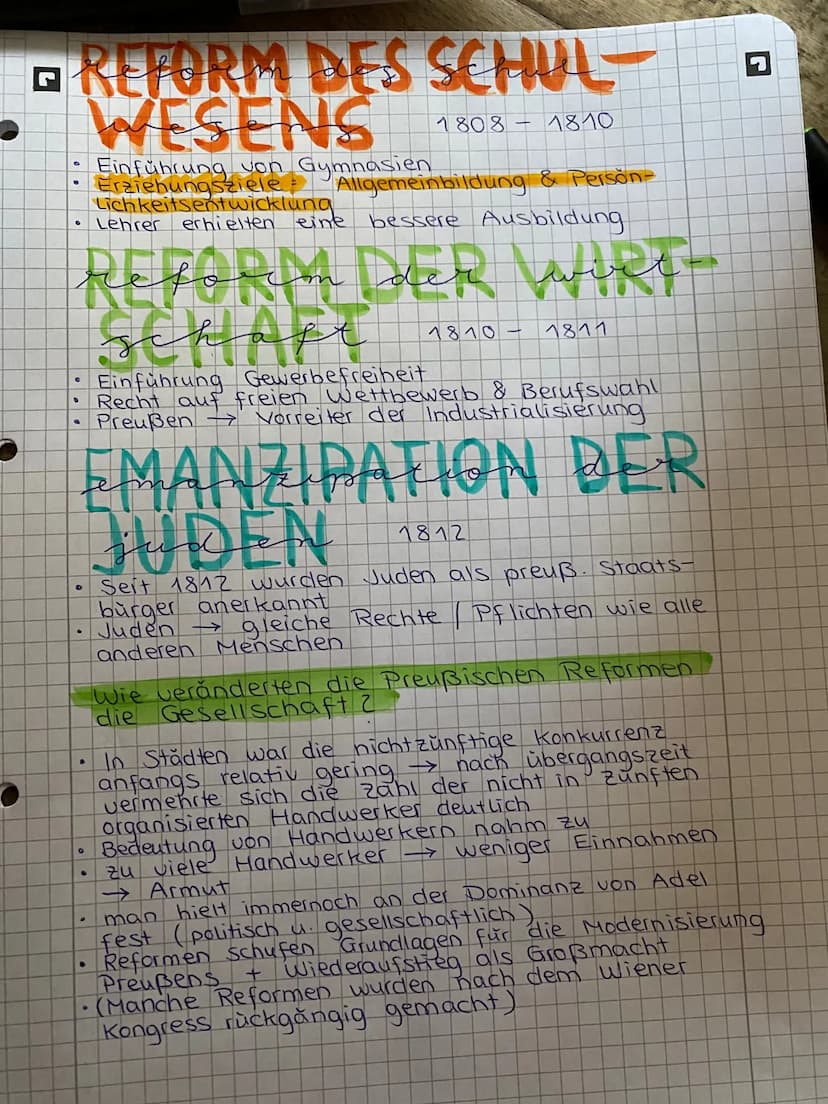 REFORM DES SCHUL-
WESENS 1808 - 1810
• Einführung von Gymnasien
• Erziehungsziele: Allgemeinbildung & Persön-
lichkeitsentwicklung
• Lehrer erhielten eine bessere Ausbildung
REFORM DER WIRT-
SCHAFT 1810 - 1811
• Einführung Gewerbefreiheit
• Recht auf freien Wettbewerb & Berufswahl
• Preußen → Vorreiter der Industrialisierung
EMANZIPATION DER
JUDEN 1812
• Seit 1812 wurden Juden als preuß. Staats-
bürger anerkannt
• Juden → gleiche Rechte / Pflichten wie alle
anderen Menschen
Wie veränderten die Preußischen Reformen
die Gesellschaft?
• In Städten war die nichtzünftige Konkurrenz
anfangs relativ gering → nach übergangszeit
vermehrte sich die zahl der nicht in zünften
organisierten Handwerker deutlich
• Bedeutung von Handwerkern nahm zu
• zu viele Handwerker → weniger Einnahmen
→ Armut
• man hielt immernoch an der Dominanz von Adel
fest (politisch u. gesellschaftlich)
• Reformen schufen Grundlagen für die Modernisierung
Preußens + Wiederaufstieg als Großmacht
• (Manche Reformen wurden nach dem Wiener
Kongress rückgängig gemacht)